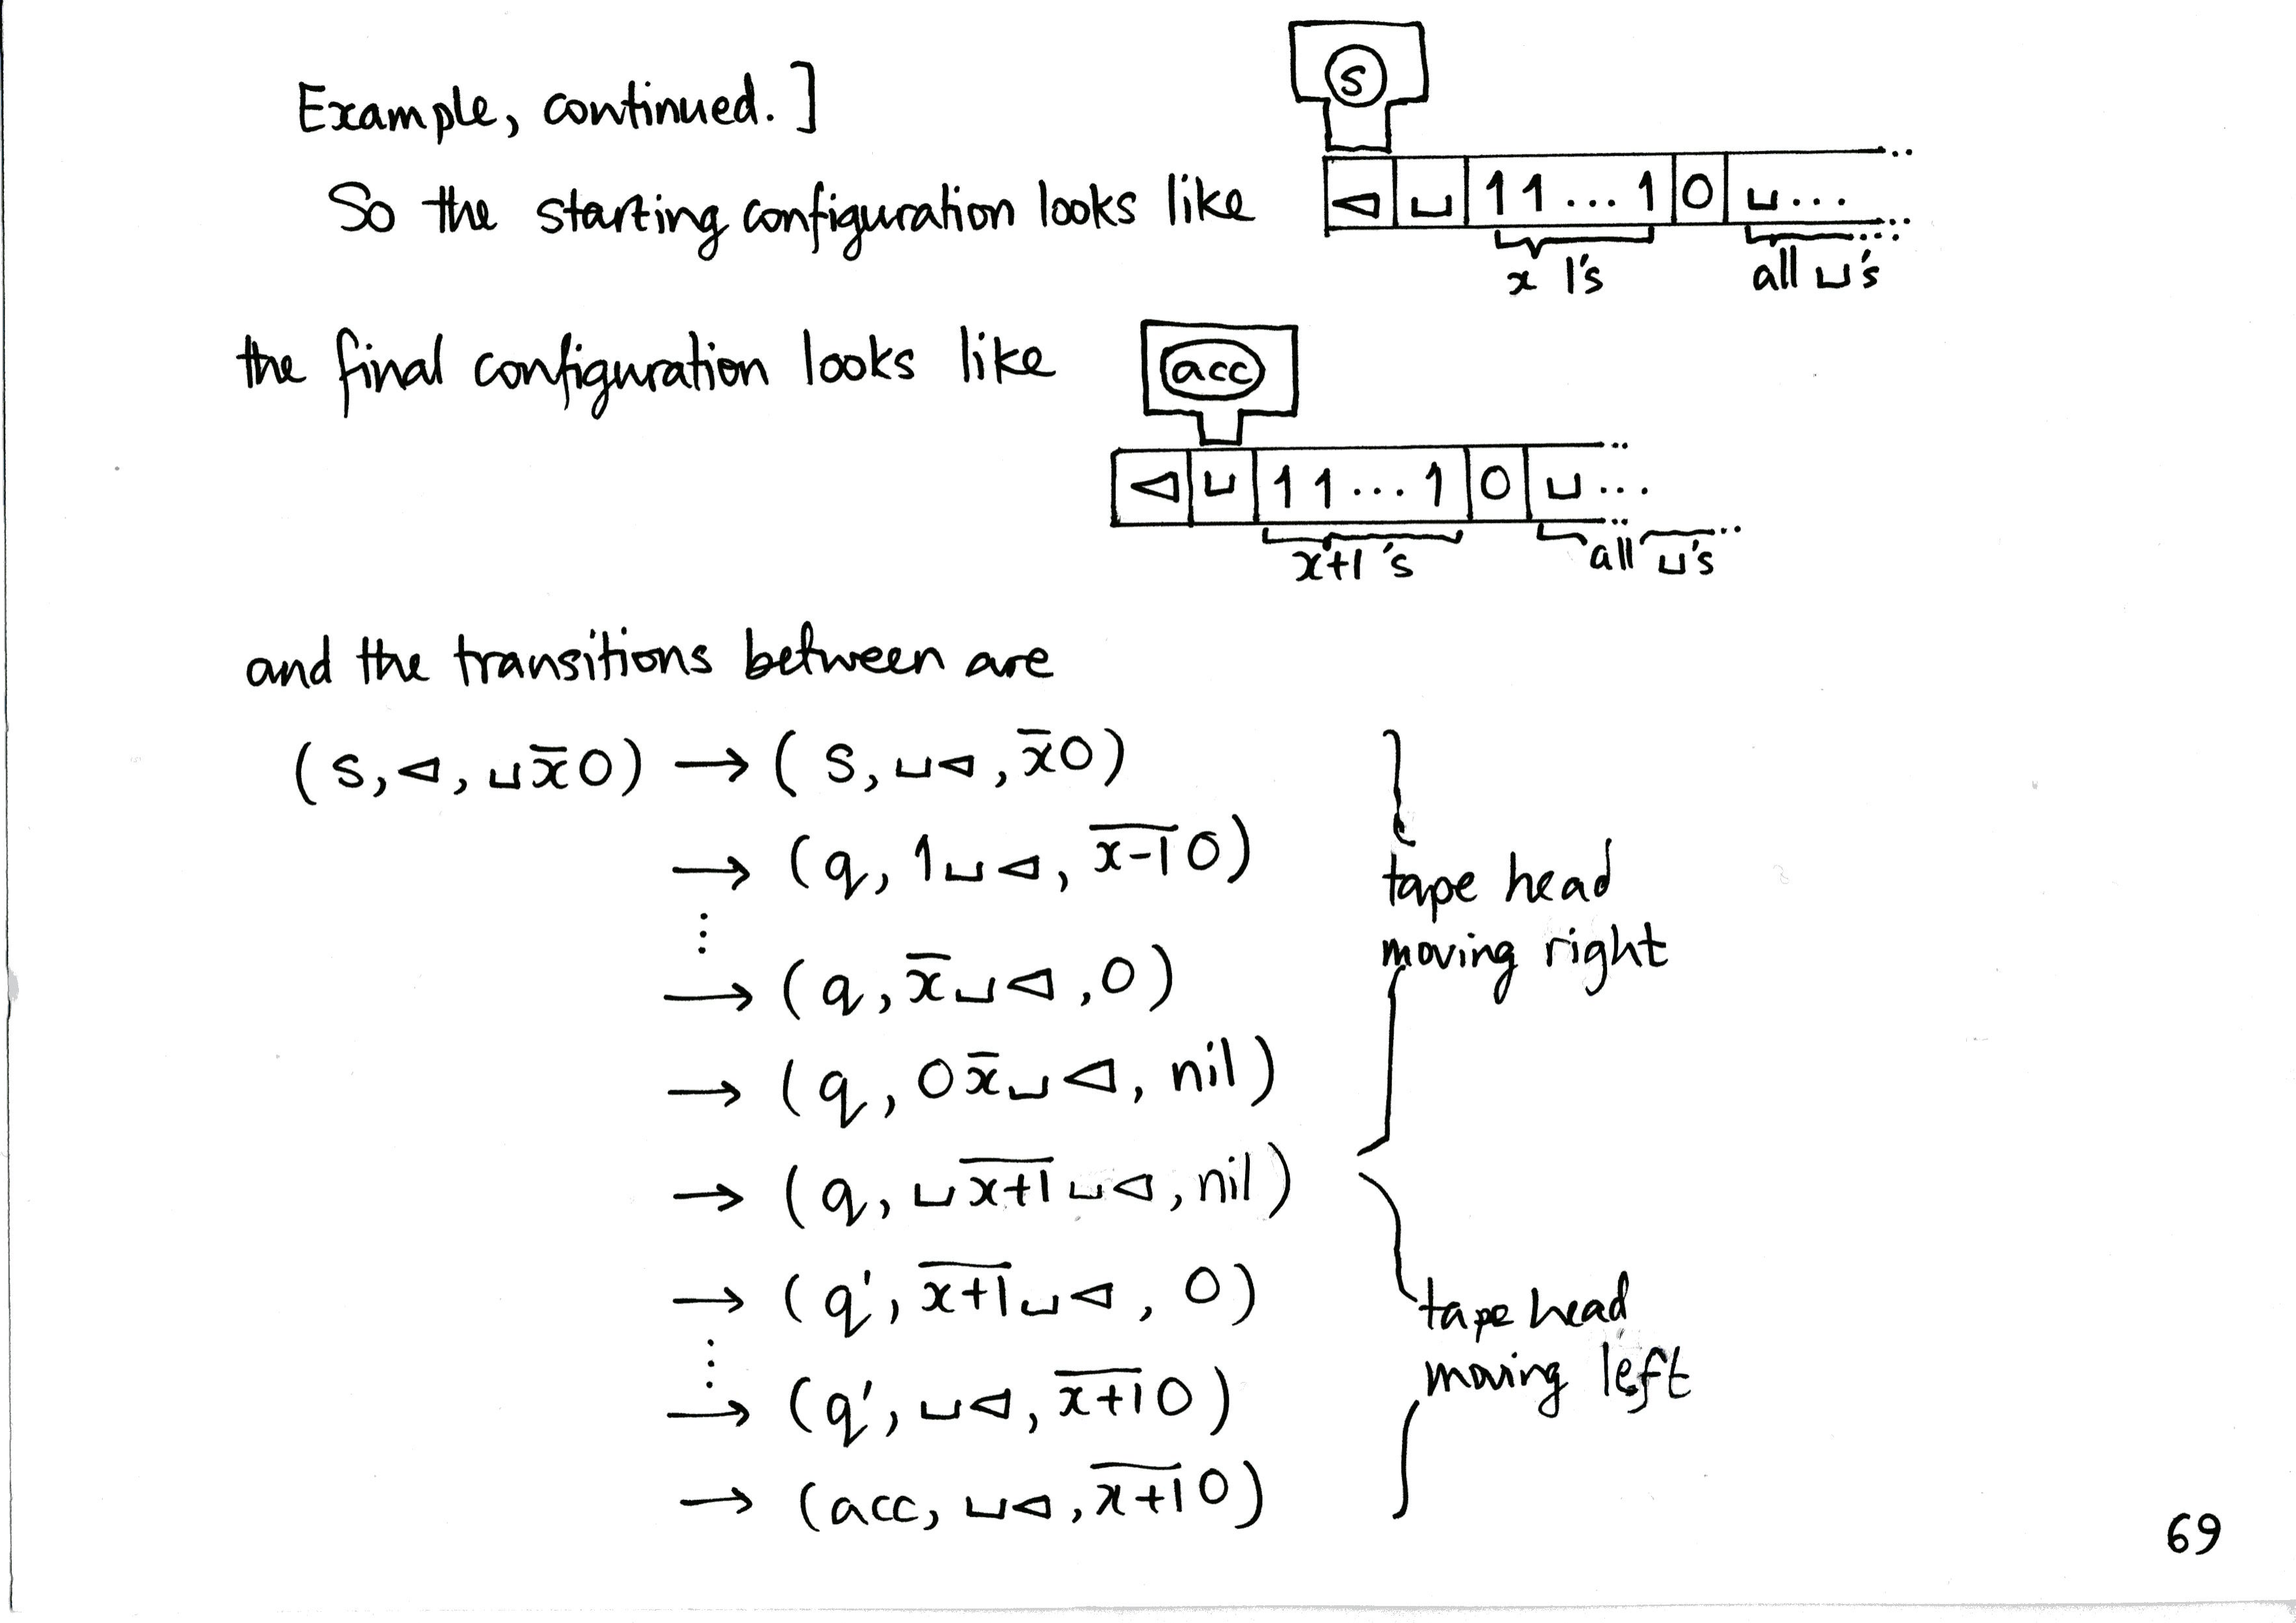 Example, continued.]
S
So the starting configuration looks like
◁ ␣ 1 1 ... 1 0 ␣ ...
x 1's all ␣'s
the final configuration looks like
acc
◁ ␣ 1 1 ... 1 0 ␣ ...
x+1's all ␣'s
and the transitions between are
(s, ◁, ␣x̅0) → (s, ␣◁, x̅0)
→ (q, 1␣◁, x̅-̅1̅0)
⋮
→ (q, x̅␣◁, 0)
→ (q, 0x̅␣◁, nil)
→ (q, ␣x̅+̅1̅␣◁, nil)
→ (q', x̅+̅1̅␣◁, 0)
⋮
→ (q', ␣◁, x̅+̅1̅0)
→ (acc, ␣◁, x̅+̅1̅0)
tape head
moving right
tape head
moving left
69